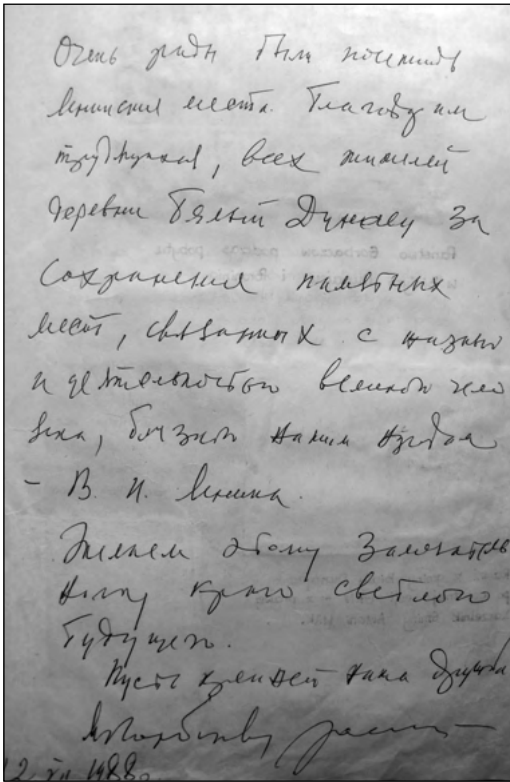 Очень рады были посетить
Ленинские места. Благодарим
тружеников, всех жителей
деревни Бялый Дунаец за
сохранение памятных
мест, связанных с жизнью
и деятельностью великого чело
века, близкого нашим народам
– В. И. Ленина.
Желаем этому замечатель
ному краю светлого
будущего.
Пусть крепнет наша дружба
М Горбачев
12 VII 1988г